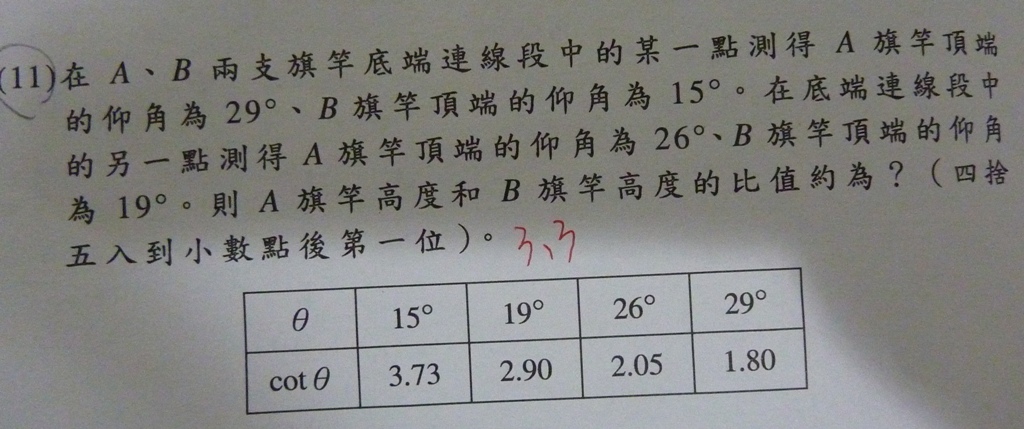 (11)在 A、B 兩支旗竿底端連線段中的某一點測得 A 旗竿頂端
的仰角為 29°、B 旗竿頂端的仰角為 15°。在底端連線段中
的另一點測得 A 旗竿頂端的仰角為 26°、B 旗竿頂端的仰角
為 19°。則 A 旗竿高度和 B 旗竿高度的比值約為？（四捨
五入到小數點後第一位）。3.3
θ 15° 19° 26° 29°
cot θ 3.73 2.90 2.05 1.80